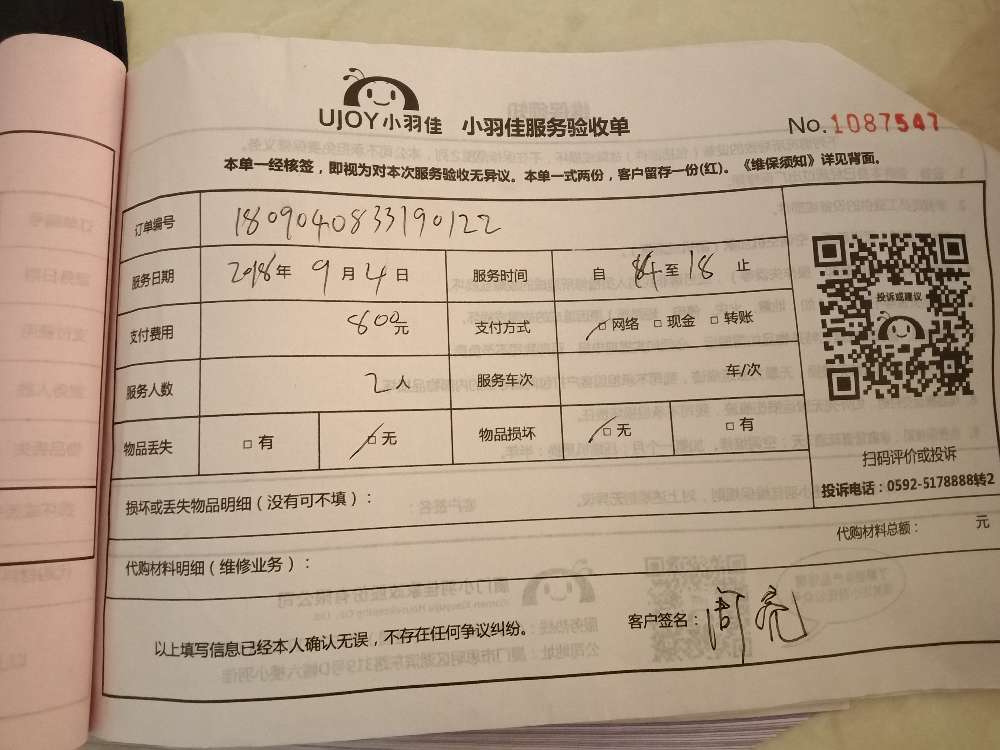 UJOY小羽佳 小羽佳服务验收单
No.1087547
本单一经核签，即视为对本次服务验收无异议。本单一式两份，客户留存一份(红)。《维保须知》详见背面。
订单编号 1809040833190122
服务日期 2018年 9月4日 服务时间 自 8 至 18 止
支付费用 800元 支付方式 □网络 □现金 □转账
服务人数 2人 服务车次 车/次
物品丢失 □有 □无 物品损坏 □无 □有
投诉或建议
扫码评价或投诉
投诉电话：0592-5178888转2
损坏或丢失物品明细（没有可不填）：
代购材料明细（维修业务）：
代购材料总额： 元
以上填写信息已经本人确认无误，不存在任何争议纠纷。
客户签名：周亮